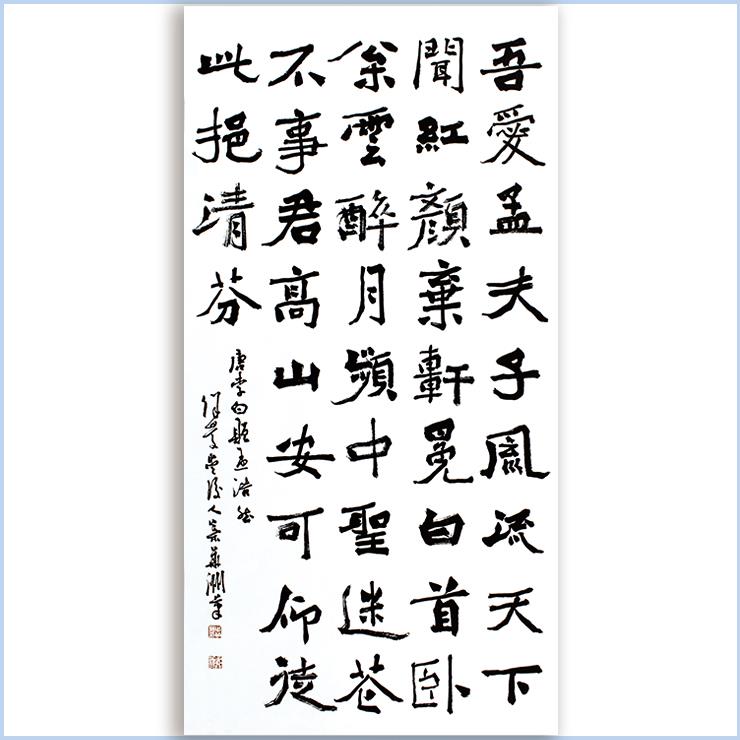 吾愛孟夫子風流天下
聞紅顏棄軒冕白首卧
枀雲醉月頻中聖迷花
不事君高山安可仰徒
此挹清芬
唐李白題孟浩然